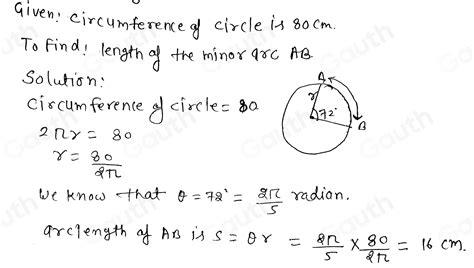 Given: circumference of circle is 80cm.
To Find: length of the minor arc AB
Solution:
Circumference of circle = 80
2πr = 80
r = 80/2π
We know that θ = 72° = 2π/5 radion.
arclength of AB is S = θr = 2π/5 × 80/2π = 16 cm.
A
r
72°
B
Gauth